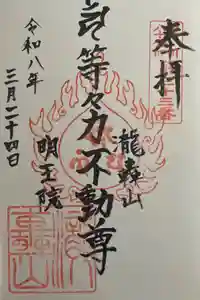 奉拝
瀧轟山
等々力不動尊
明王院
令和八年
三月二十四日